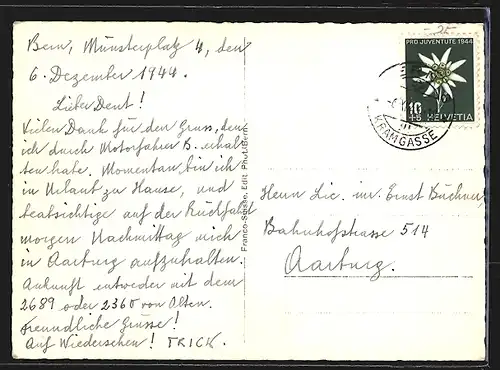 Bern, Münsterplatz 4, den
6. Dezember 1944.
Lieber Dent!
Vielen Dank für den Gruss, den
ich durch Motorfahrer B. erhal-
ten habe. Momentan bin ich
in Urlaub zu Hause, und
beabsichtige auf der Rückfahrt
morgen Nachmittag mich
in Aarburg aufzuhalten.
Ankunft entweder mit dem
2689 oder 2360 von Olten.
Freundliche Grüsse!
Auf Wiedersehen! TRICK.
Franco-Suisse, Edit. Phot./Bern
PRO JUVENTUTE 1944
10
+5
HELVETIA
KRAMGASSE
Herrn Lic. iur. Ernst Büchner
Bahnhofstrasse 514
Aarburg.